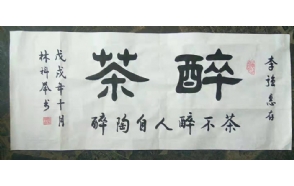 李惠存
醉茶
茶不醉人自陶醉
戊戌年十月
林书